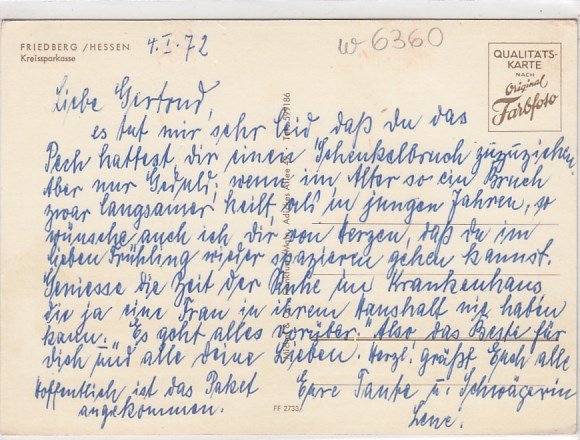 FRIEDBERG / HESSEN
Kreissparkasse
4.I.72
W 6360
QUALITÄTS-
KARTE
NACH
Original
Farbfoto
Liebe Gertrud,
es tut mir sehr leid, daß du das
Pech hattest dir einen Schenkelbruch zuzuziehen.
Aber nur Geduld, wenn im Alter so ein Bruch
zwar langsamer heilt, als in jungen Jahren, so
wünsche auch ich dir von Herzen, daß du im
lieben Frühling wieder spazieren gehen kannst.
Geniesse die Zeit der Ruhe im Krankenhaus
die ja eine Frau in ihrem Haushalt nie haben
kann. "Es geht alles vorüber." Also das Beste für
dich und alle deine Lieben. Herzl. grüßt Euch alle
Eure Tante u. Schwägerin
Lene.
Hoffentlich ist das Paket
angekommen.
FF 2733
Adickes Allee · Tel. 599186